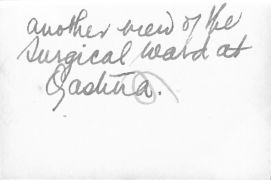 another view of the
surgical ward at
Gastina.